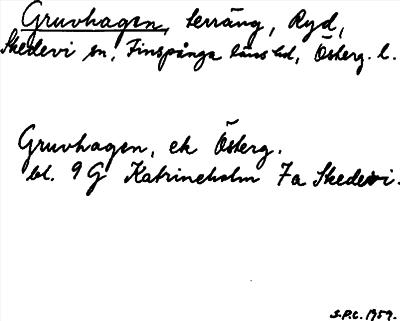 Gruvhagen, terräng, Ryd,
Skedevi sn, Finspånga läns hd, Österg. l.
Gruvhagen, ek Österg.
bl. 9 G Katrineholm 7a Skedevi.
S.P.C. 1959.